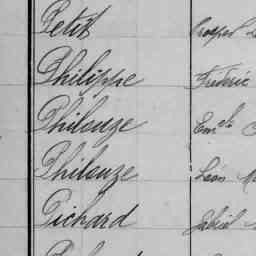 Petit Prosper
Philippe Frédéric
Phileuze Em.
Phileuze Léon
Pichard Gabriel